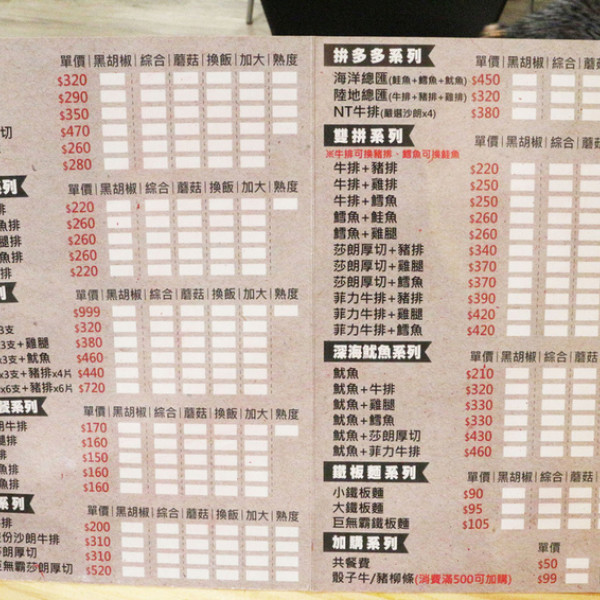 單價|黑胡椒|綜合|蘑菇|換飯|加大|熟度
$320
$290
$350
切 $470
$260
$280
列
單價|黑胡椒|綜合|蘑菇|換飯|加大|熟度
排 $220
魚排 $260
腿排 $260
魚排 $260
排 $220
列
單價|黑胡椒|綜合|蘑菇|換飯|加大|熟度
$999
x3支 $320
x3支+雞腿 $380
x3支+魷魚 $460
x3支+豬排x4片 $440
x6支+豬排x6片 $720
餐系列
單價|黑胡椒|綜合|蘑菇|換飯|加大|熟度
朗牛排 $170
腿排 $160
排 $150
魚排 $160
魚排 $160
系列
單價|黑胡椒|綜合|蘑菇|換飯|加大|熟度
排 $200
份沙朗牛排 $310
莎朗厚切 $310
巨無霸莎朗厚切 $520
拼多多系列
單價|黑胡椒|綜合|蘑菇
海洋總匯(鮭魚+鱈魚+魷魚) $450
陸地總匯(牛排+豬排+雞排) $320
NT牛排(嚴選沙朗x4) $380
雙拼系列
單價|黑胡椒|綜合|蘑菇
※牛排可換豬排、鱈魚可換鮭魚
牛排+豬排 $220
牛排+雞排 $250
牛排+鱈魚 $250
鱈魚+鮭魚 $260
鱈魚+雞腿 $260
莎朗厚切+豬排 $340
莎朗厚切+雞腿 $370
莎朗厚切+鱈魚 $370
菲力牛排+豬排 $390
菲力牛排+雞腿 $420
菲力牛排+鱈魚 $420
深海魷魚系列
單價|黑胡椒|綜合|蘑菇
魷魚 $210
魷魚+牛排 $320
魷魚+雞腿 $330
魷魚+鱈魚 $330
魷魚+莎朗厚切 $430
魷魚+菲力牛排 $460
鐵板麵系列
單價|黑胡椒|綜合|蘑菇
小鐵板麵 $90
大鐵板麵 $95
巨無霸鐵板麵 $105
加購系列
單價
共餐費 $50
骰子牛/豬柳條(消費滿500可加購) $99